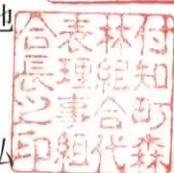 付知町森
林組合代
表理事組
合長之印
地